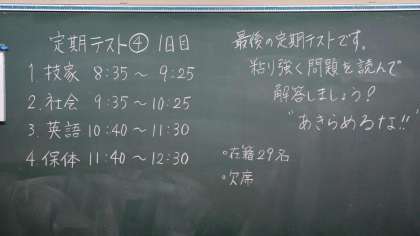 定期テスト④ 1日目
1. 技家 8:35～9:25
2. 社会 9:35～10:25
3. 英語 10:40～11:30
4. 保体 11:40～12:30
最後の定期テストです。
粘り強く問題を読んで
解答しましょう?
"あきらめるな!!"
・在籍29名
・欠席